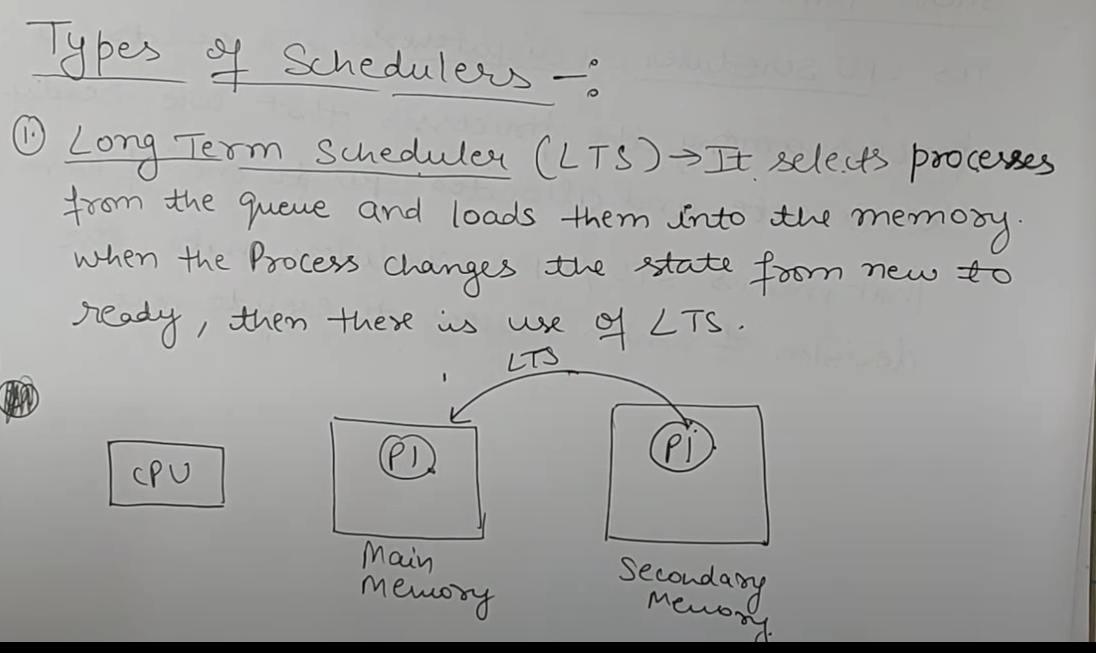 Types of Schedulers -:
① Long Term Scheduler (LTS) → It selects processes
from the queue and loads them into the memory.
when the Process changes the state from new to
ready, then there is use of LTS.
LTS
CPU
P1
Pi
Main
Memory
Secondary
Memory.